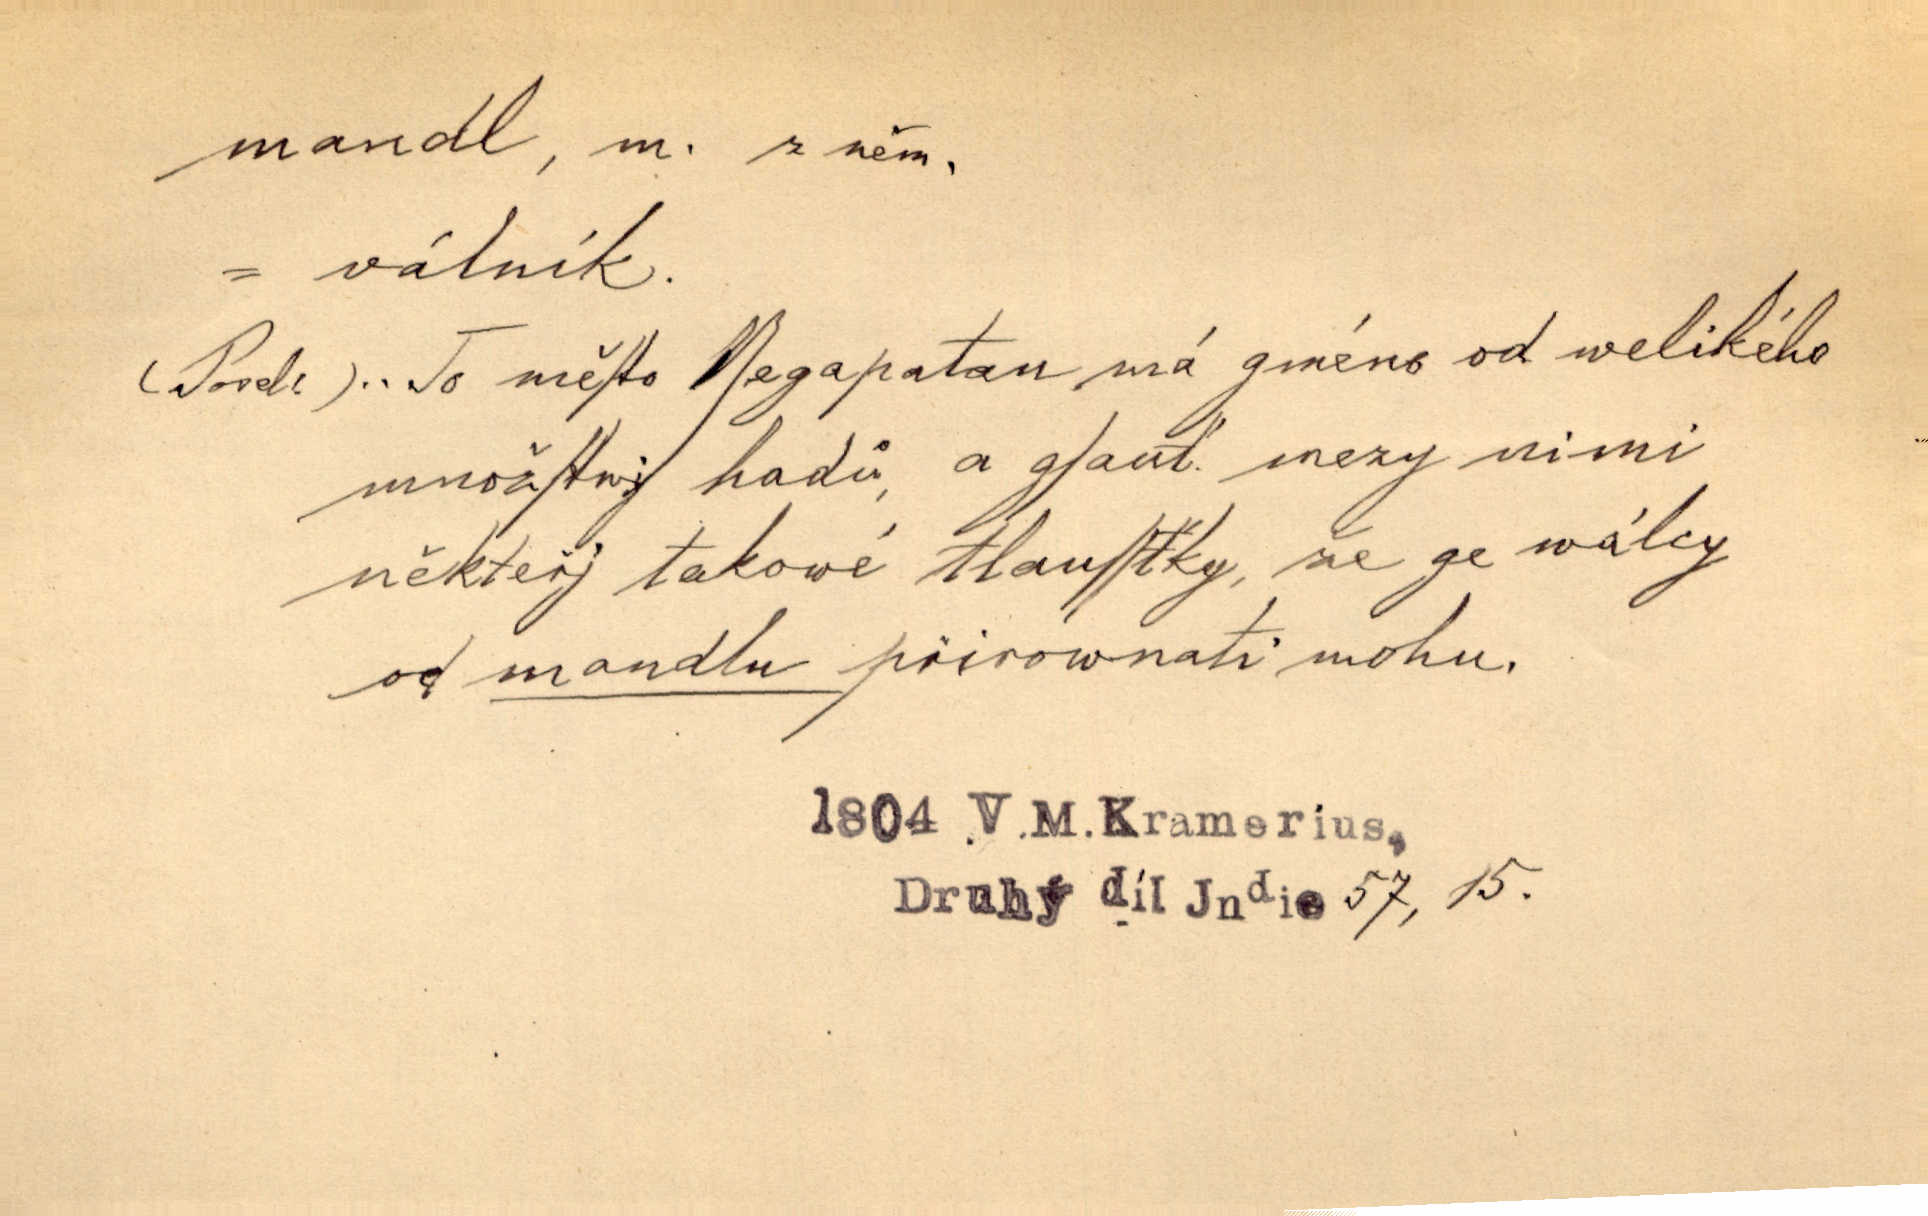 mandl, m. z něm.
= válník.
To měſto Negapatan má gméno od welikého
množſtwj hadů, a gſauť mezy nimi
někteřj takowé tlauſſťky, že ge wálcy
od mandlu přirownati mohu.
1804 V.M.Kramerius,
Druhý díl Jndie 57, 15.